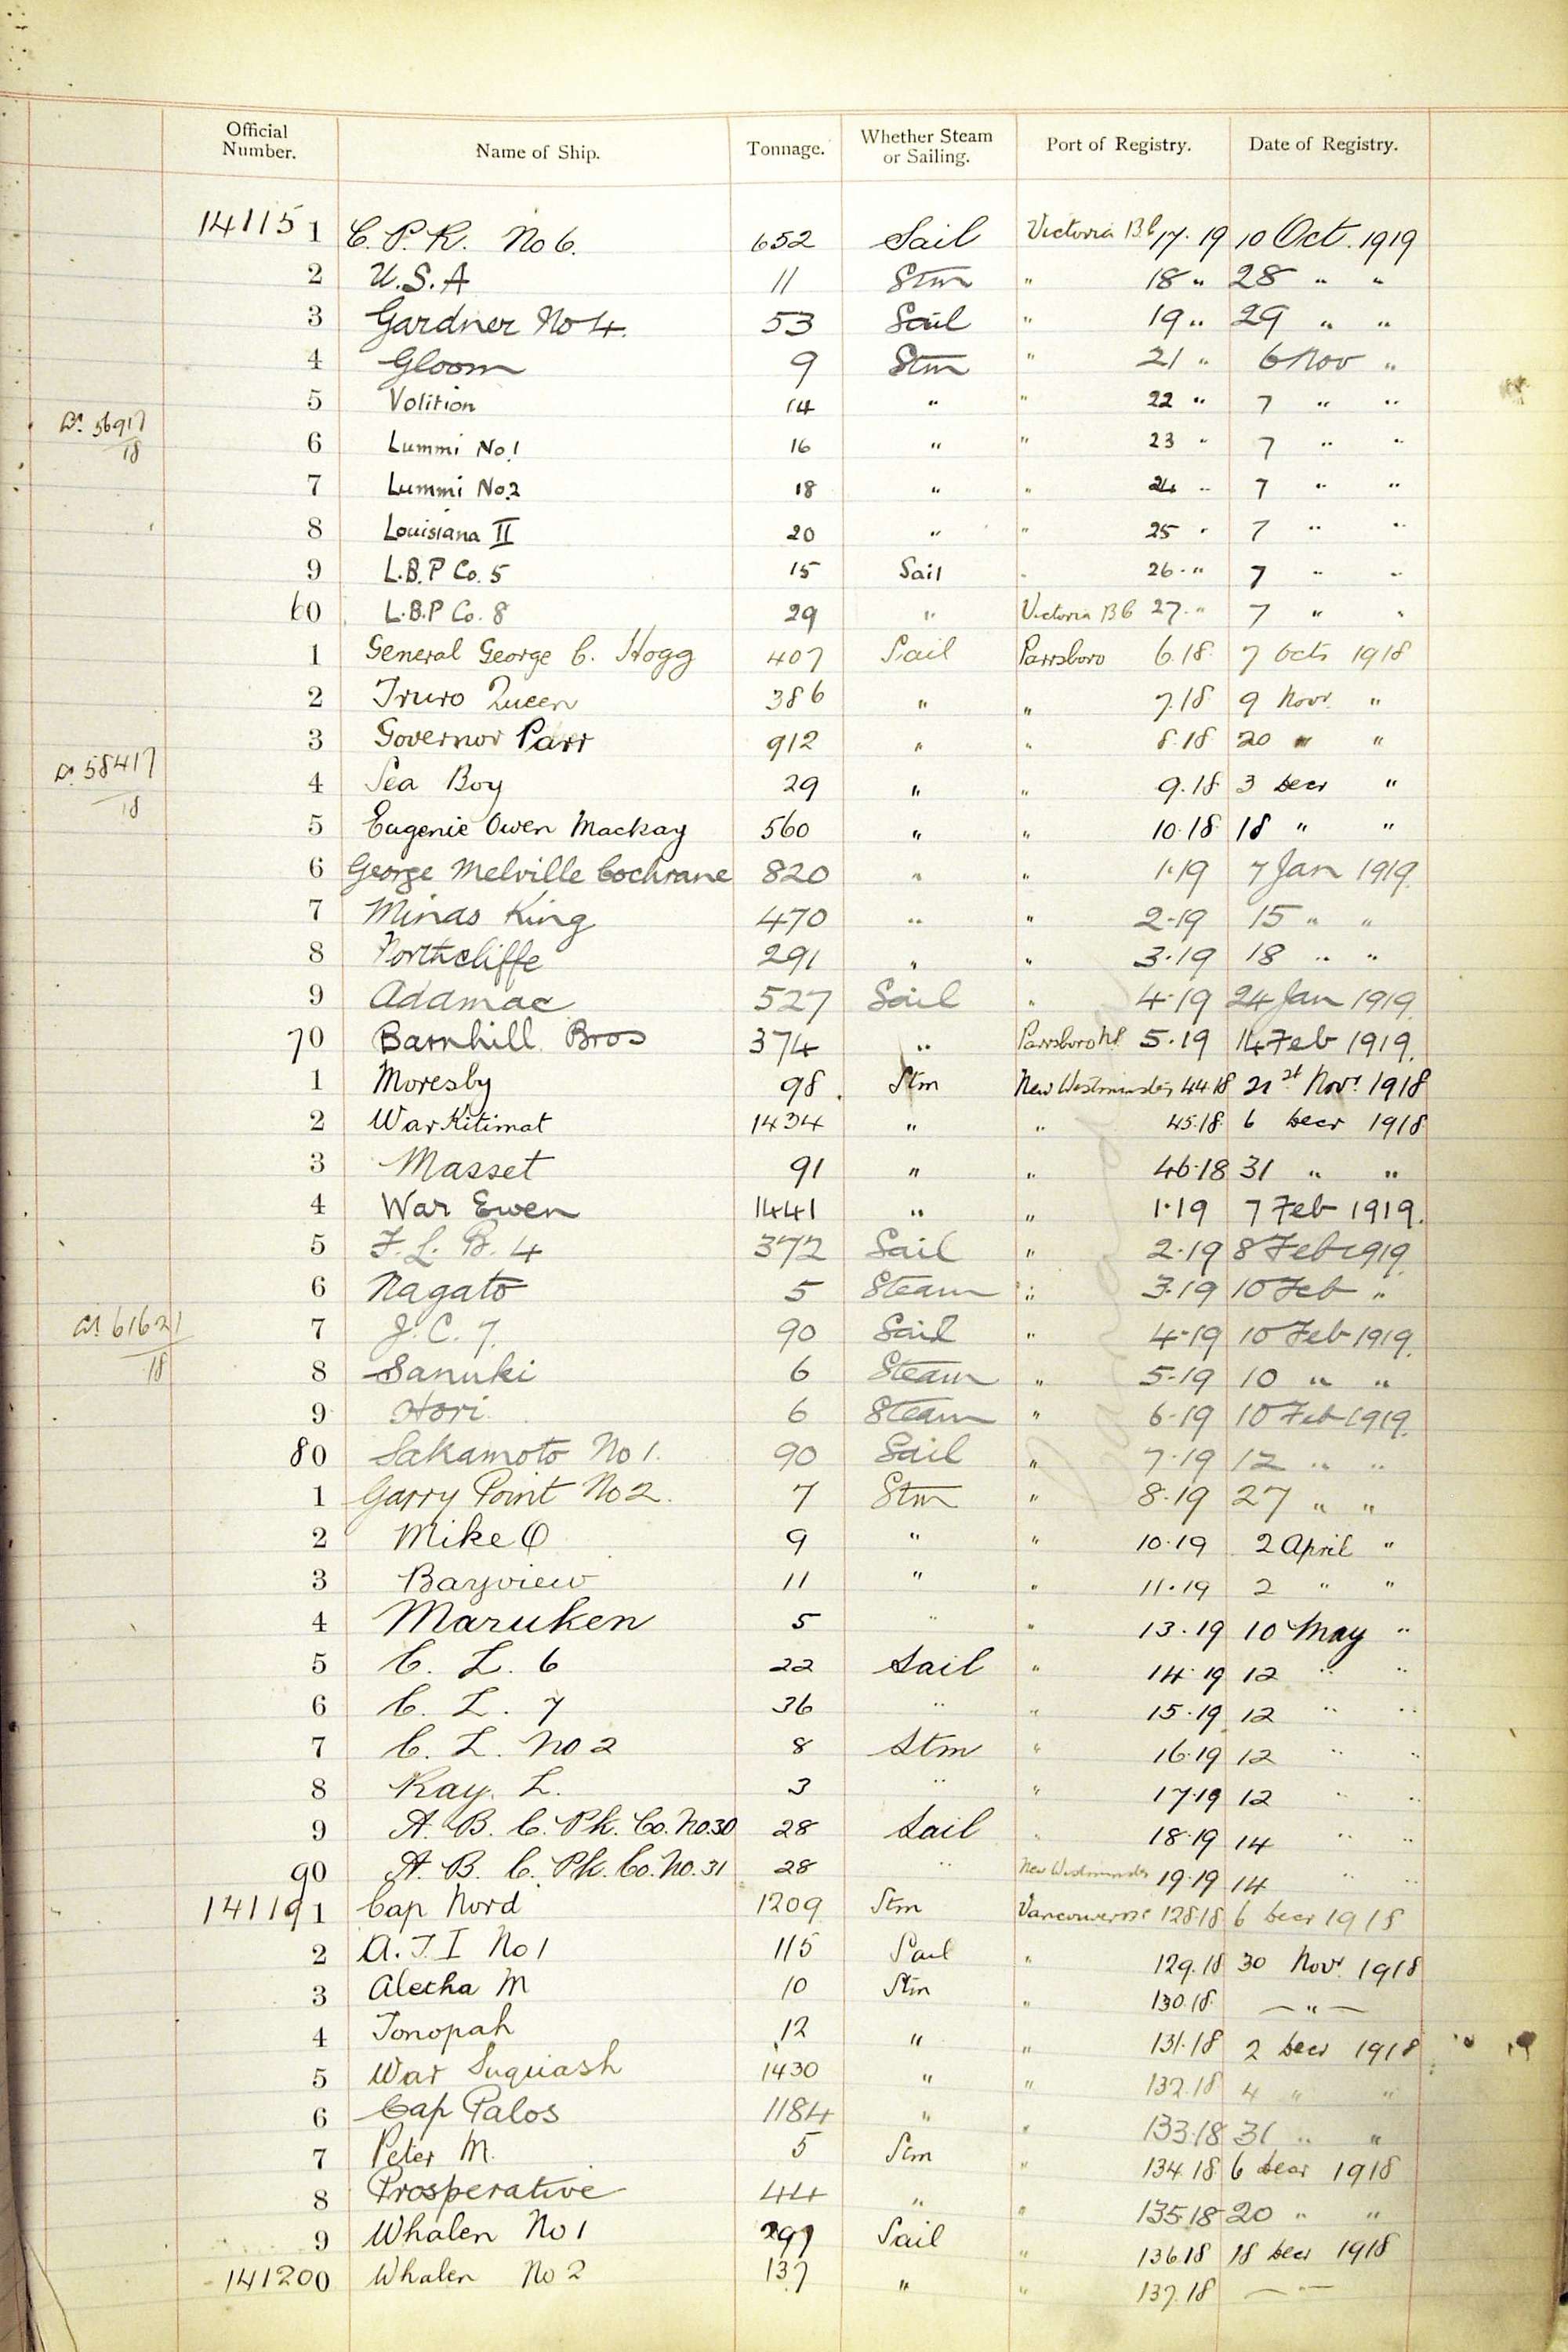 Official Number. Name of Ship. Tonnage. Whether Steam or Sailing. Port of Registry. Date of Registry.
141151 C. P. R. No 6. 652 Sail Victoria B.C 17. 19 10 Oct. 1919
2 U.S.A 11 Stm " 18 " 28 " "
3 Gardner No 4. 53 Sail " 19 " 29 " "
4 Gloom 9 Stm " 21 " 6 Nov "
5 Volition 14 " " 22 " 7 " "
56917/18
6 Lummi No.1 16 " " 23 " 7 " "
7 Lummi No.2 18 " " 24 " 7 " "
8 Louisiana II 20 " " 25 " 7 " "
9 L.B.P Co. 5 15 Sail " 26 " 7 " "
60 L.B.P Co. 8 29 " Victoria B C 27. " 7 " "
1 General George C. Hogg 407 Sail Parrsboro 6.18 7 Octr 1918
2 Truro Queen 386 " " 7.18 9 Novr "
3 Governor Parr 912 " " 8.18 20 " "
58417/18
4 Sea Boy 29 " " 9.18 3 Decr "
5 Eugenie Owen Mackay 560 " " 10.18 18 " "
6 George Melville Cochrane 820 " " 1.19 7 Jan 1919.
7 Minas King 470 " " 2.19 15 " "
8 Northcliffe 291 " " 3.19 18 " "
9 Adamac 527 Sail " 4.19 24 Jan 1919.
70 Barnhill Bros 374 " Parrsboro NS 5.19 14 Feb 1919.
1 Moresby 98 Stm New Westminster 44.18 21st Novr 1918
2 War Kitimat 1434 " " 45.18 6 Decr 1918
3 Masset 91 " " 46.18 31 " "
4 War Ewen 1441 " " 1.19 7 Feb 1919.
5 F. L. B. 4 372 Sail " 2.19 8 Feb 1919
6 Nagato 5 Steam " 3.19 10 Feb "
61621/18
7 J. C. 7. 90 Sail " 4.19 10 Feb 1919.
8 Sanuki 6 Steam " 5.19 10 " "
9 Hori 6 Steam " 6.19 10 Feb 1919.
80 Sakamoto No 1. 90 Sail " 7.19 12 " "
1 Garry Point No 2. 7 Stm " 8.19 27 " "
2 Mike O 9 " " 10.19 2 April "
3 Bayview 11 " " 11.19 2 " "
4 Maruken 5 " " 13.19 10 May "
5 C. L. 6 22 Sail " 14.19 12 " "
6 C. L. 7 36 " " 15.19 12 " "
7 C. L. No 2 8 Stm " 16.19 12 " "
8 Ray. L. 3 " " 17.19 12 " "
9 A. B. C. Pk. Co. No.30 28 Sail " 18.19 14 " "
90 A. B. C. Pk. Co. No. 31 28 " New Westminster 19.19 14 " "
141191 Cap Nord 1209 Stm Vancouver BC 128.18 6 Decr 1918
2 A.T.I No 1 115 Sail " 129.18 30 Novr 1918
3 Aletha M 10 Stm " 130.18. — " —
4 Tonopah 12 " " 131.18 2 Decr 1918
5 War Suquash 1430 " " 132.18 4 " "
6 Cap Palos 1184 " " 133.18 31 " "
7 Peter M. 5 Stm " 134.18 6 Decr 1918
8 Prosperative 44 " " 135.18 20 " "
9 Whalen No 1 Sail " 136.18 18 Decr 1918
141200 Whalen No 2 137 " " 137.18 — " —